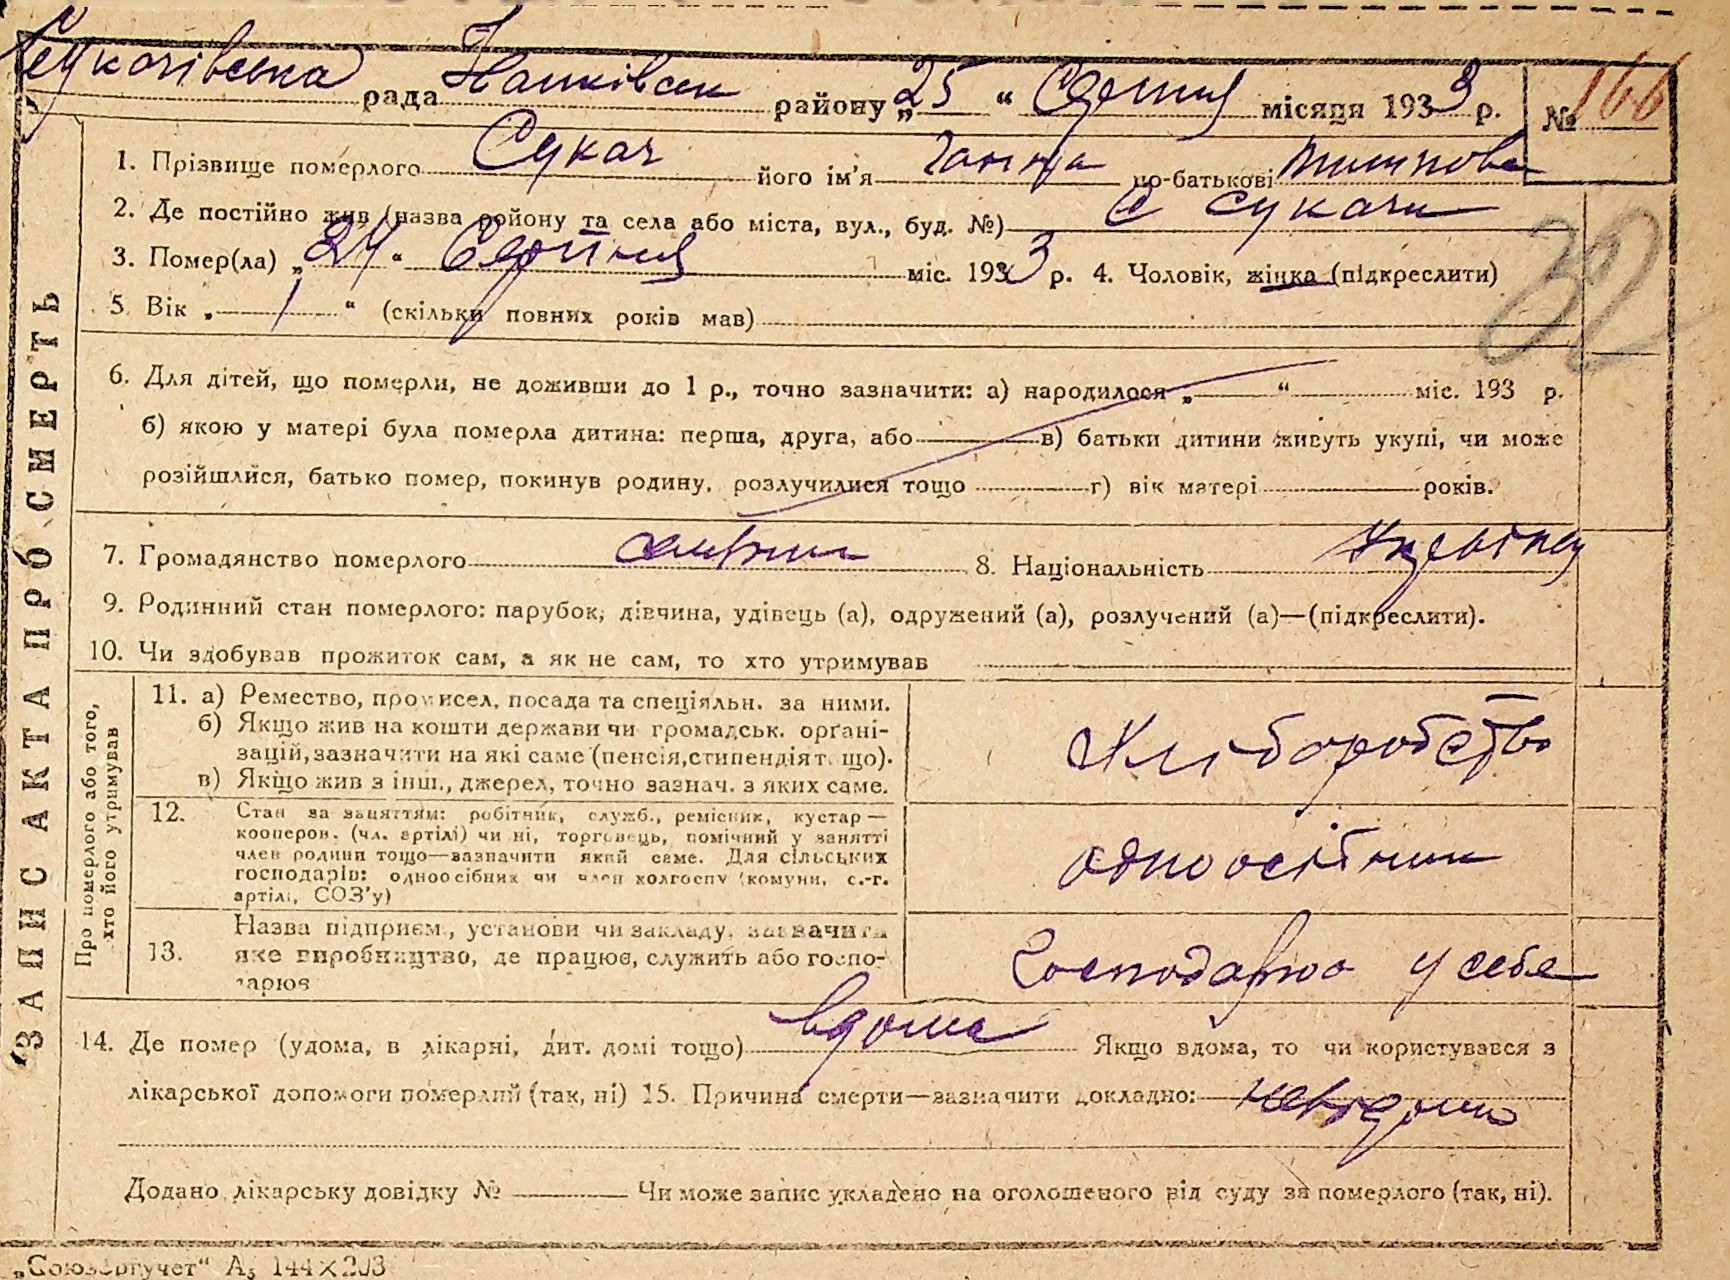 Сукачівська рада Іванківськ району „25“ Серпня місяця 1933 р. № 166
1. Прізвище померлого Сукач його ім'я Ганна по-батькові
2. Де постійно жив (назва району та села або міста, вул., буд. №) с Сукачи
3. Помер(ла) „24“ Серпня міс. 1933 р. 4. Чоловік, жінка (підкреслити)
5. Вік „1“ (скільки повних років мав)
6. Для дітей, що померли, не доживши до 1 р., точно зазначити: а) народилося „ “ міс. 193 р.
б) якою у матері була померла дитина: перша, друга, або в) батьки дитини живуть укупі, чи може
розійшлися, батько помер, покинув родину, розлучилися тощо г) вік матері років.
7. Громадянство померлого 8. Національність
9. Родинний стан померлого: парубок, дівчина, удівець (а), одружений (а), розлучений (а)—(підкреслити).
10. Чи здобував прожиток сам, а як не сам, то хто утримував
ЗАПИС АКТА ПРО СМЕРТЬ
Про померлого або того,
хто його утримував
11. а) Ремество, промисел, посада та спеціяльн. за ними.
б) Якщо жив на кошти держави чи громадськ. орґані-
зацій, зазначити на які саме (пенсія, стипендія т. що).
в) Якщо жив з інш., джерел, точно зазнач. з яких саме.
Хліборобство
12. Стан за заняттям: робітник, служб., ремісник, кустар—
кооперов. (чл. артілі) чи ні, торговець, помічний у занятті
член родини тощо—зазначити який саме. Для сільських
господарів: одноосібник чи член колгоспу (комуни, с.-г.
артілі, СОЗ'у)
одноосібник
13. Назва підприєм., установи чи закладу, зазначити
яке виробництво, де працює, служить або госпо-
дарює
Господарюв у себе
14. Де помер (удома, в лікарні, дит. домі тощо) вдома Якщо вдома, то чи користувався з
лікарської допомоги померлий (так, ні) 15. Причина смерти—зазначити докладно: невідомо
Додано лікарську довідку № Чи може запис укладено на оголошеного від суду за померлого (так, ні).
„Союзоргучет“ А5 144×203